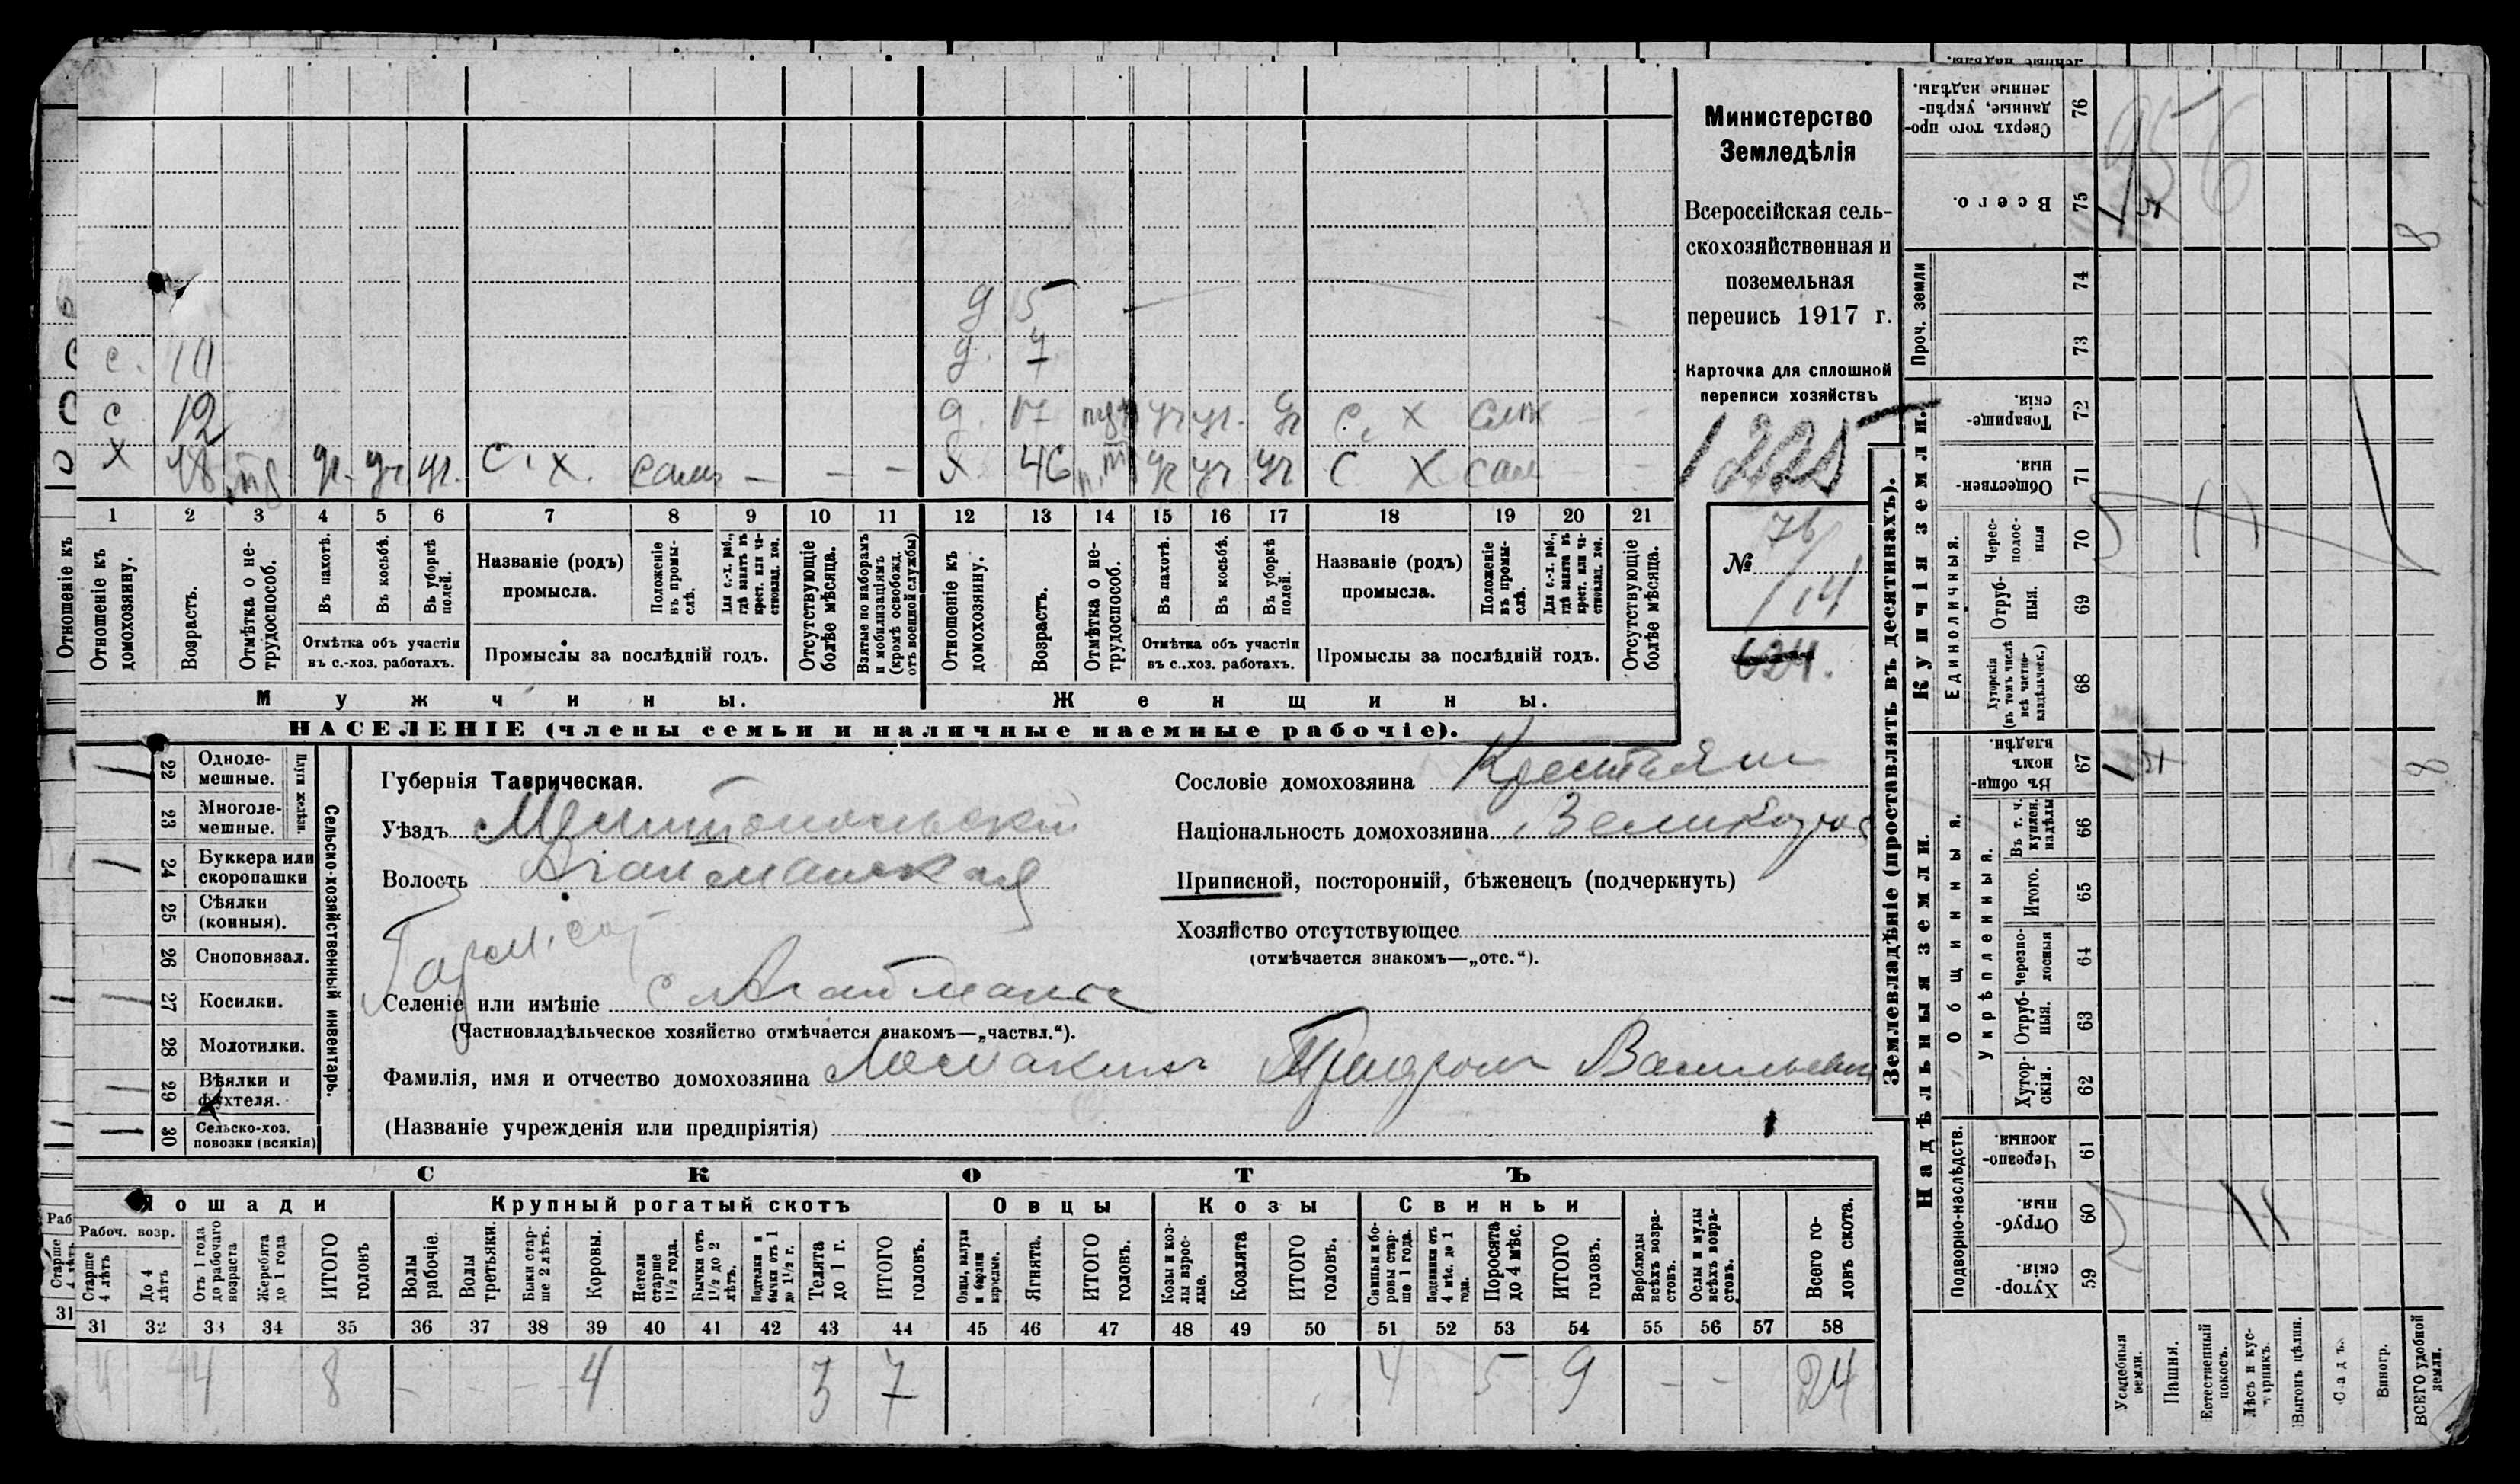 д 5 —
с. 10 д. 7
с 12 д. 17 уч уч. уч с. х сам
х 48 уч. уч уч. с. х. сам — — — х 46 уч уч уч с х сам
1 2 3 4 5 6 7 8 9 10 11 12 13 14 15 16 17 18 19 20 21
Отношеніе къ
Отношеніе къ домохозяину.
Возрастъ.
Отмѣтка о не-трудоспособ.
Въ пахотѣ.
Въ косьбѣ.
Въ уборкѣ полей.
Отмѣтка объ участіи
въ с.-хоз. работахъ.
Названіе (родъ)
промысла.
Положеніе въ промы-слѣ.
Для с.-х. раб., гдѣ занятъ въ крест. или ча-стновлад. хоз.
Промыслы за послѣдній годъ.
Отсутствующіе болѣе мѣсяца.
Взятые по наборамъ и мобилизаціямъ (кромѣ освобожд. отъ военной службы)
Отношеніе къ домохозяину.
Возрастъ.
Отмѣтка о не-трудоспособ.
Въ пахотѣ.
Въ косьбѣ.
Въ уборкѣ полей.
Отмѣтка объ участіи
въ с..хоз. работахъ.
Названіе (родъ)
промысла.
Положеніе въ промы-слѣ.
Для с.-х. раб., гдѣ занятъ въ крест. или ча-стновлад. хоз.
Промыслы за послѣдній годъ.
Отсутствующіе болѣе мѣсяца.
Мужчины.
Женщины.
НАСЕЛЕНІЕ (члены семьи и наличные наемные рабочіе).
Министерство
Земледѣлія
Всероссійская сель-
скохозяйственная и
поземельная
перепись 1917 г.
Карточка для сплошной
переписи хозяйствъ
1225
№ 76/14
634.
22 Одноле-мешные.
23 Многоле-мешные.
Плуги желѣзн.
24 Буккера или скоропашки
25 Сѣялки (конныя).
26 Сноповязал.
27 Косилки.
28 Молотилки.
29 Вѣялки и фухтеля.
30 Сельско-хоз. повозки (всякія)
Сельско-хозяйственный инвентарь.
Губернія Таврическая.
Уѣздъ Мелитопольскій
Волость Агайманская
Селеніе или имѣніе с Агайманъ
(Частновладѣльческое хозяйство отмѣчается знакомъ—„частвл.“).
Фамилія, имя и отчество домохозяина Ломакинъ Васильевич
(Названіе учрежденія или предпріятія)
Сословіе домохозяина Крестьянин
Національность домохозяина Великорос
Приписной, посторонній, бѣженецъ (подчеркнуть)
Хозяйство отсутствующее
(отмѣчается знакомъ—„отс.“).
СКОТЪ
Лошади
Крупный рогатый скотъ
Овцы
Козы
Свиньи
Раб
Старше 4 лѣтъ
31
Рабоч. возр.
Старше 4 лѣтъ
До 4 лѣтъ
Отъ 1 года до рабочаго возраста
Жеребята до 1 года
ИТОГО головъ
Волы рабочіе.
Волы третьяки.
Быки стар-ше 2 лѣтъ.
Коровы.
Нетели старше 1½ года.
Бычки отъ 1½ до 2 лѣтъ.
Подтелки и бычки отъ 1 до 1½ г.
Телята до 1 г.
ИТОГО головъ.
Овцы, валухи и бараны взрослые.
Ягнята.
ИТОГО головъ.
Козы и коз-лы взрос-лые.
Козлята
ИТОГО головъ.
Свиньи и бо-ровы стар-ше 1 года.
Подсвинки отъ 4 мѣс. до 1 года.
Поросята до 4 мѣс.
ИТОГО головъ.
Верблюды всѣхъ возра-стовъ.
Ослы и мулы всѣхъ возра-стовъ.
Всего го-ловъ скота.
31 32 33 34 35 36 37 38 39 40 41 42 43 44 45 46 47 48 49 50 51 52 53 54 55 56 57 58
4 4 8 - - - 4 3 7 4 5 9 - - 24
Землевладѣніе (проставлять въ десятинахъ).
Купчія земли.
Надѣльныя земли.
Проч. земли
Единоличныя.
Общинныя.
Укрѣпленныя.
Подворно-наслѣдств.
Сверхъ того про-данные, укрѣп-ленные надѣлы. 76
Всего. 75
74
73
Товарище-скія. 72
Обществен-ныя. 71
Черес-полос-ныя 70
Отруб-ныя. 69
Хуторскія (въ томъ числѣ всѣ частно-владѣльческ.) 68
Въ общи-номъ владѣн. 67
Въ т. ч. куплен. надѣлы 66
Итого. 65
Черезпо-лосныя 64
Отруб-ныя. 63
Хутор-скія. 62
Черезпо-лосныя. 61
Отруб-ныя. 60
Хутор-скія. 59
Усадебныя земли.
Пашня.
Естественный покосъ.
Лѣсъ и кус-тарникъ.
Выгонъ цѣлин.
Садъ.
Виногр.
ВСЕГО удобной земли.
8
8